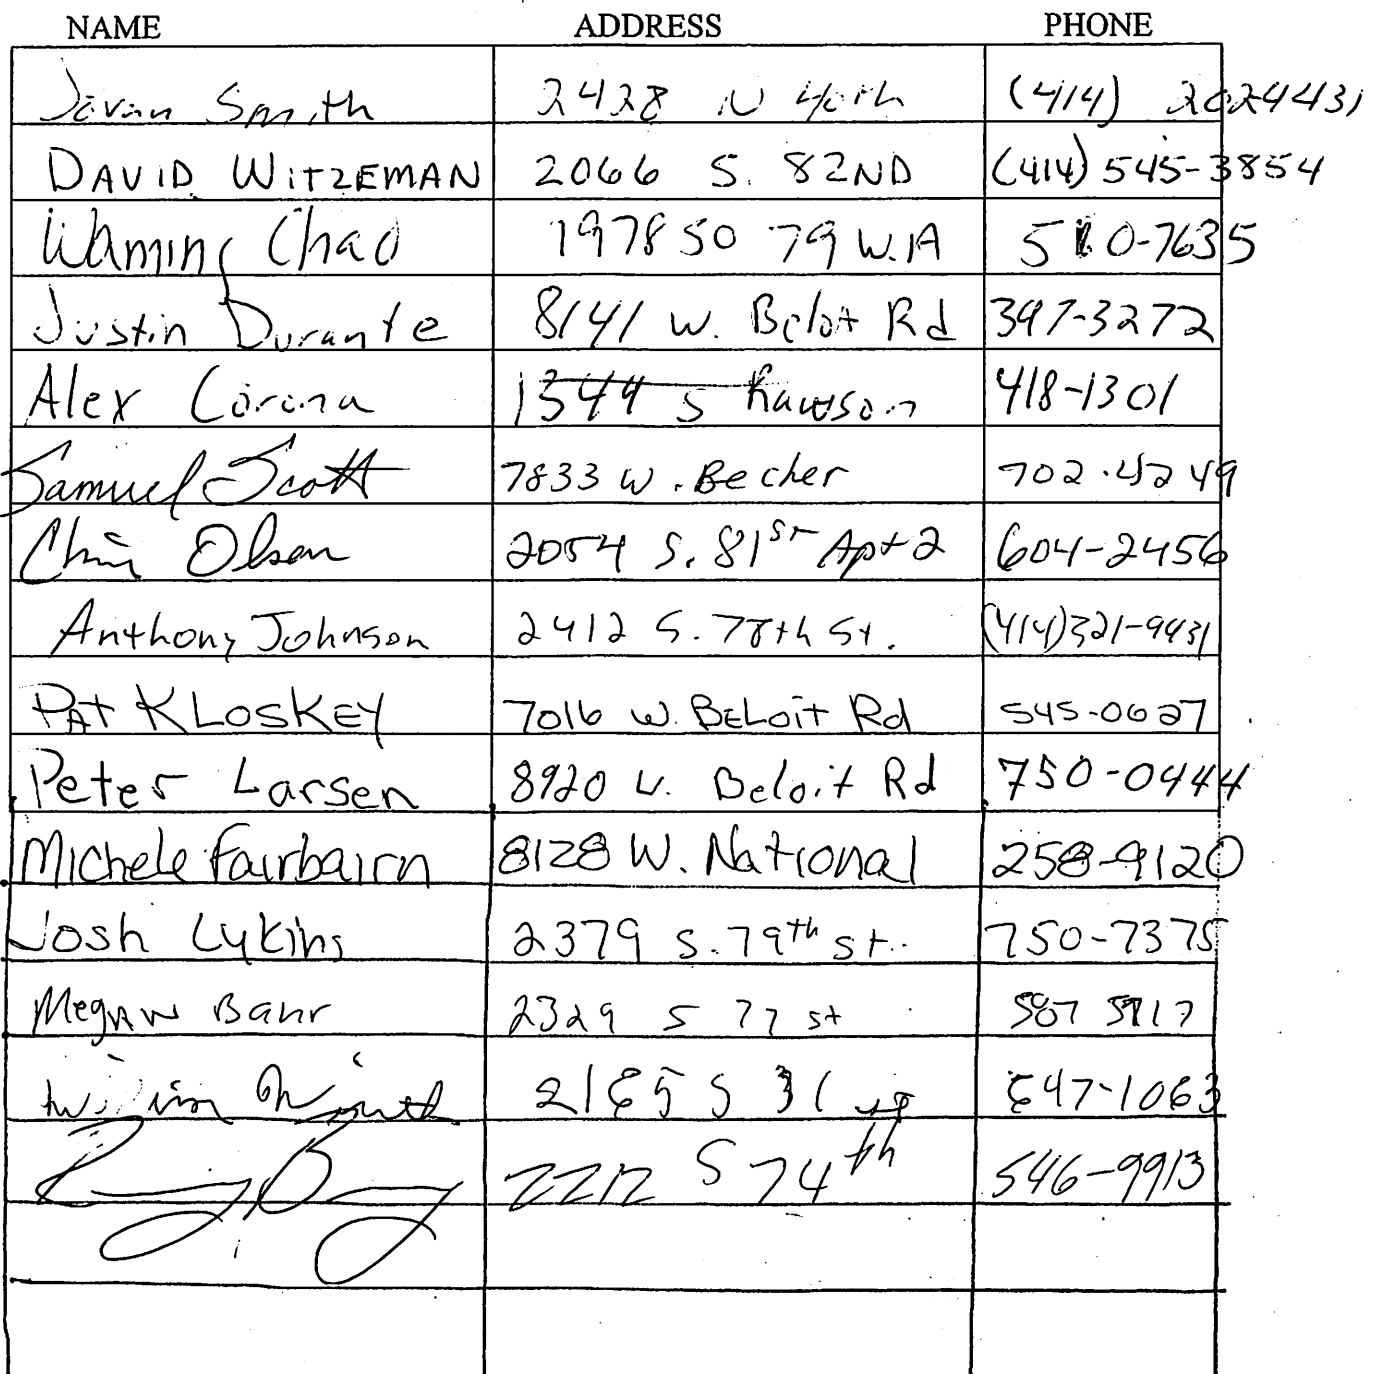 NAME ADDRESS PHONE
Javan Smith 2428 N 40th (414) 2024431
DAVID WITZEMAN 2066 S. 82ND (414) 545-3854
Waming Chao 1978 SO 79 W.A 510-7635
Justin Durante 8141 W. Beloit Rd 397-3272
Alex Corona 1344 S Rawson 418-1301
Samuel Scott 7833 W. Becher 702-4249
Chris Olson 2054 S. 81st Apt 2 604-2456
Anthony Johnson 2412 S. 78th St. (414)321-9431
PAT KLOSKEY 7016 W. BELOIT Rd 545-0627
Peter Larsen 8920 W. Beloit Rd 750-0444
Michele Fairbairn 8128 W. National 258-9120
Josh Lykins 2379 S. 79th St. 750-7375
Megan Bahr 2329 S 77 st 587 5917
William 2165 S 31 647-1063
2212 S 74th 546-9913